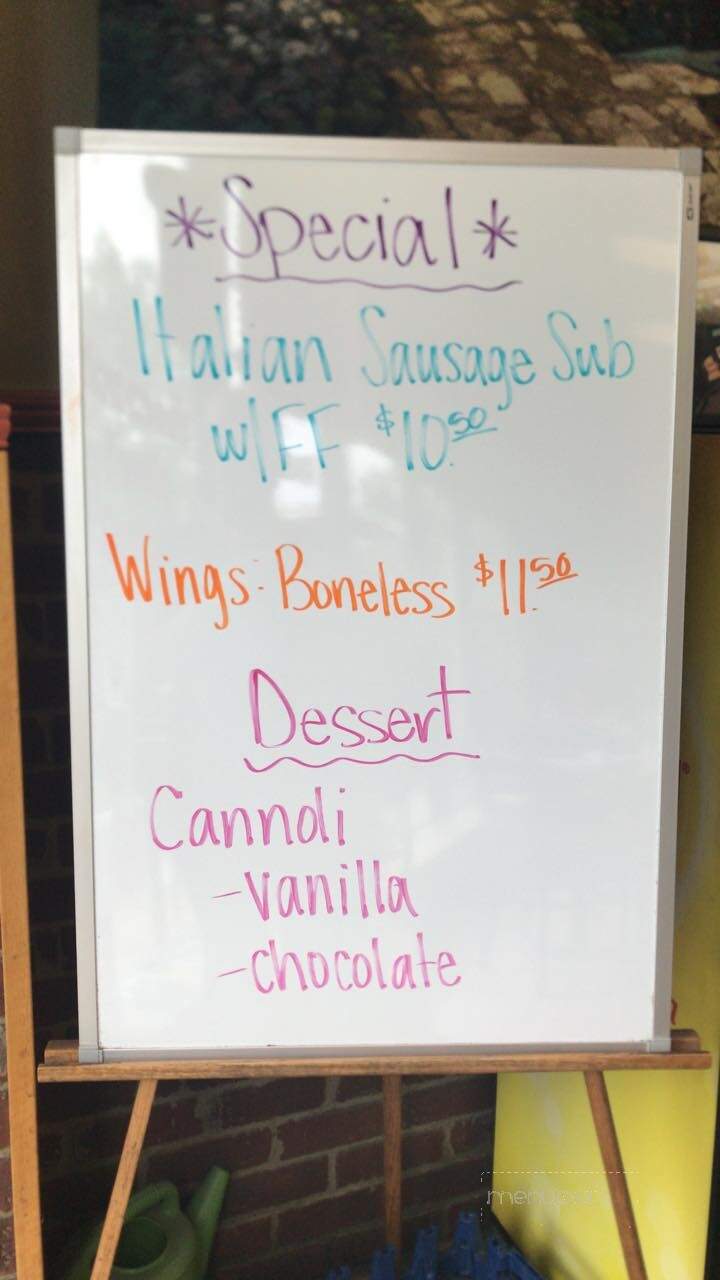 *Special*
Italian Sausage Sub
w/FF $10.50
Wings: Boneless $11.50
Dessert
Cannoli
-vanilla
-chocolate